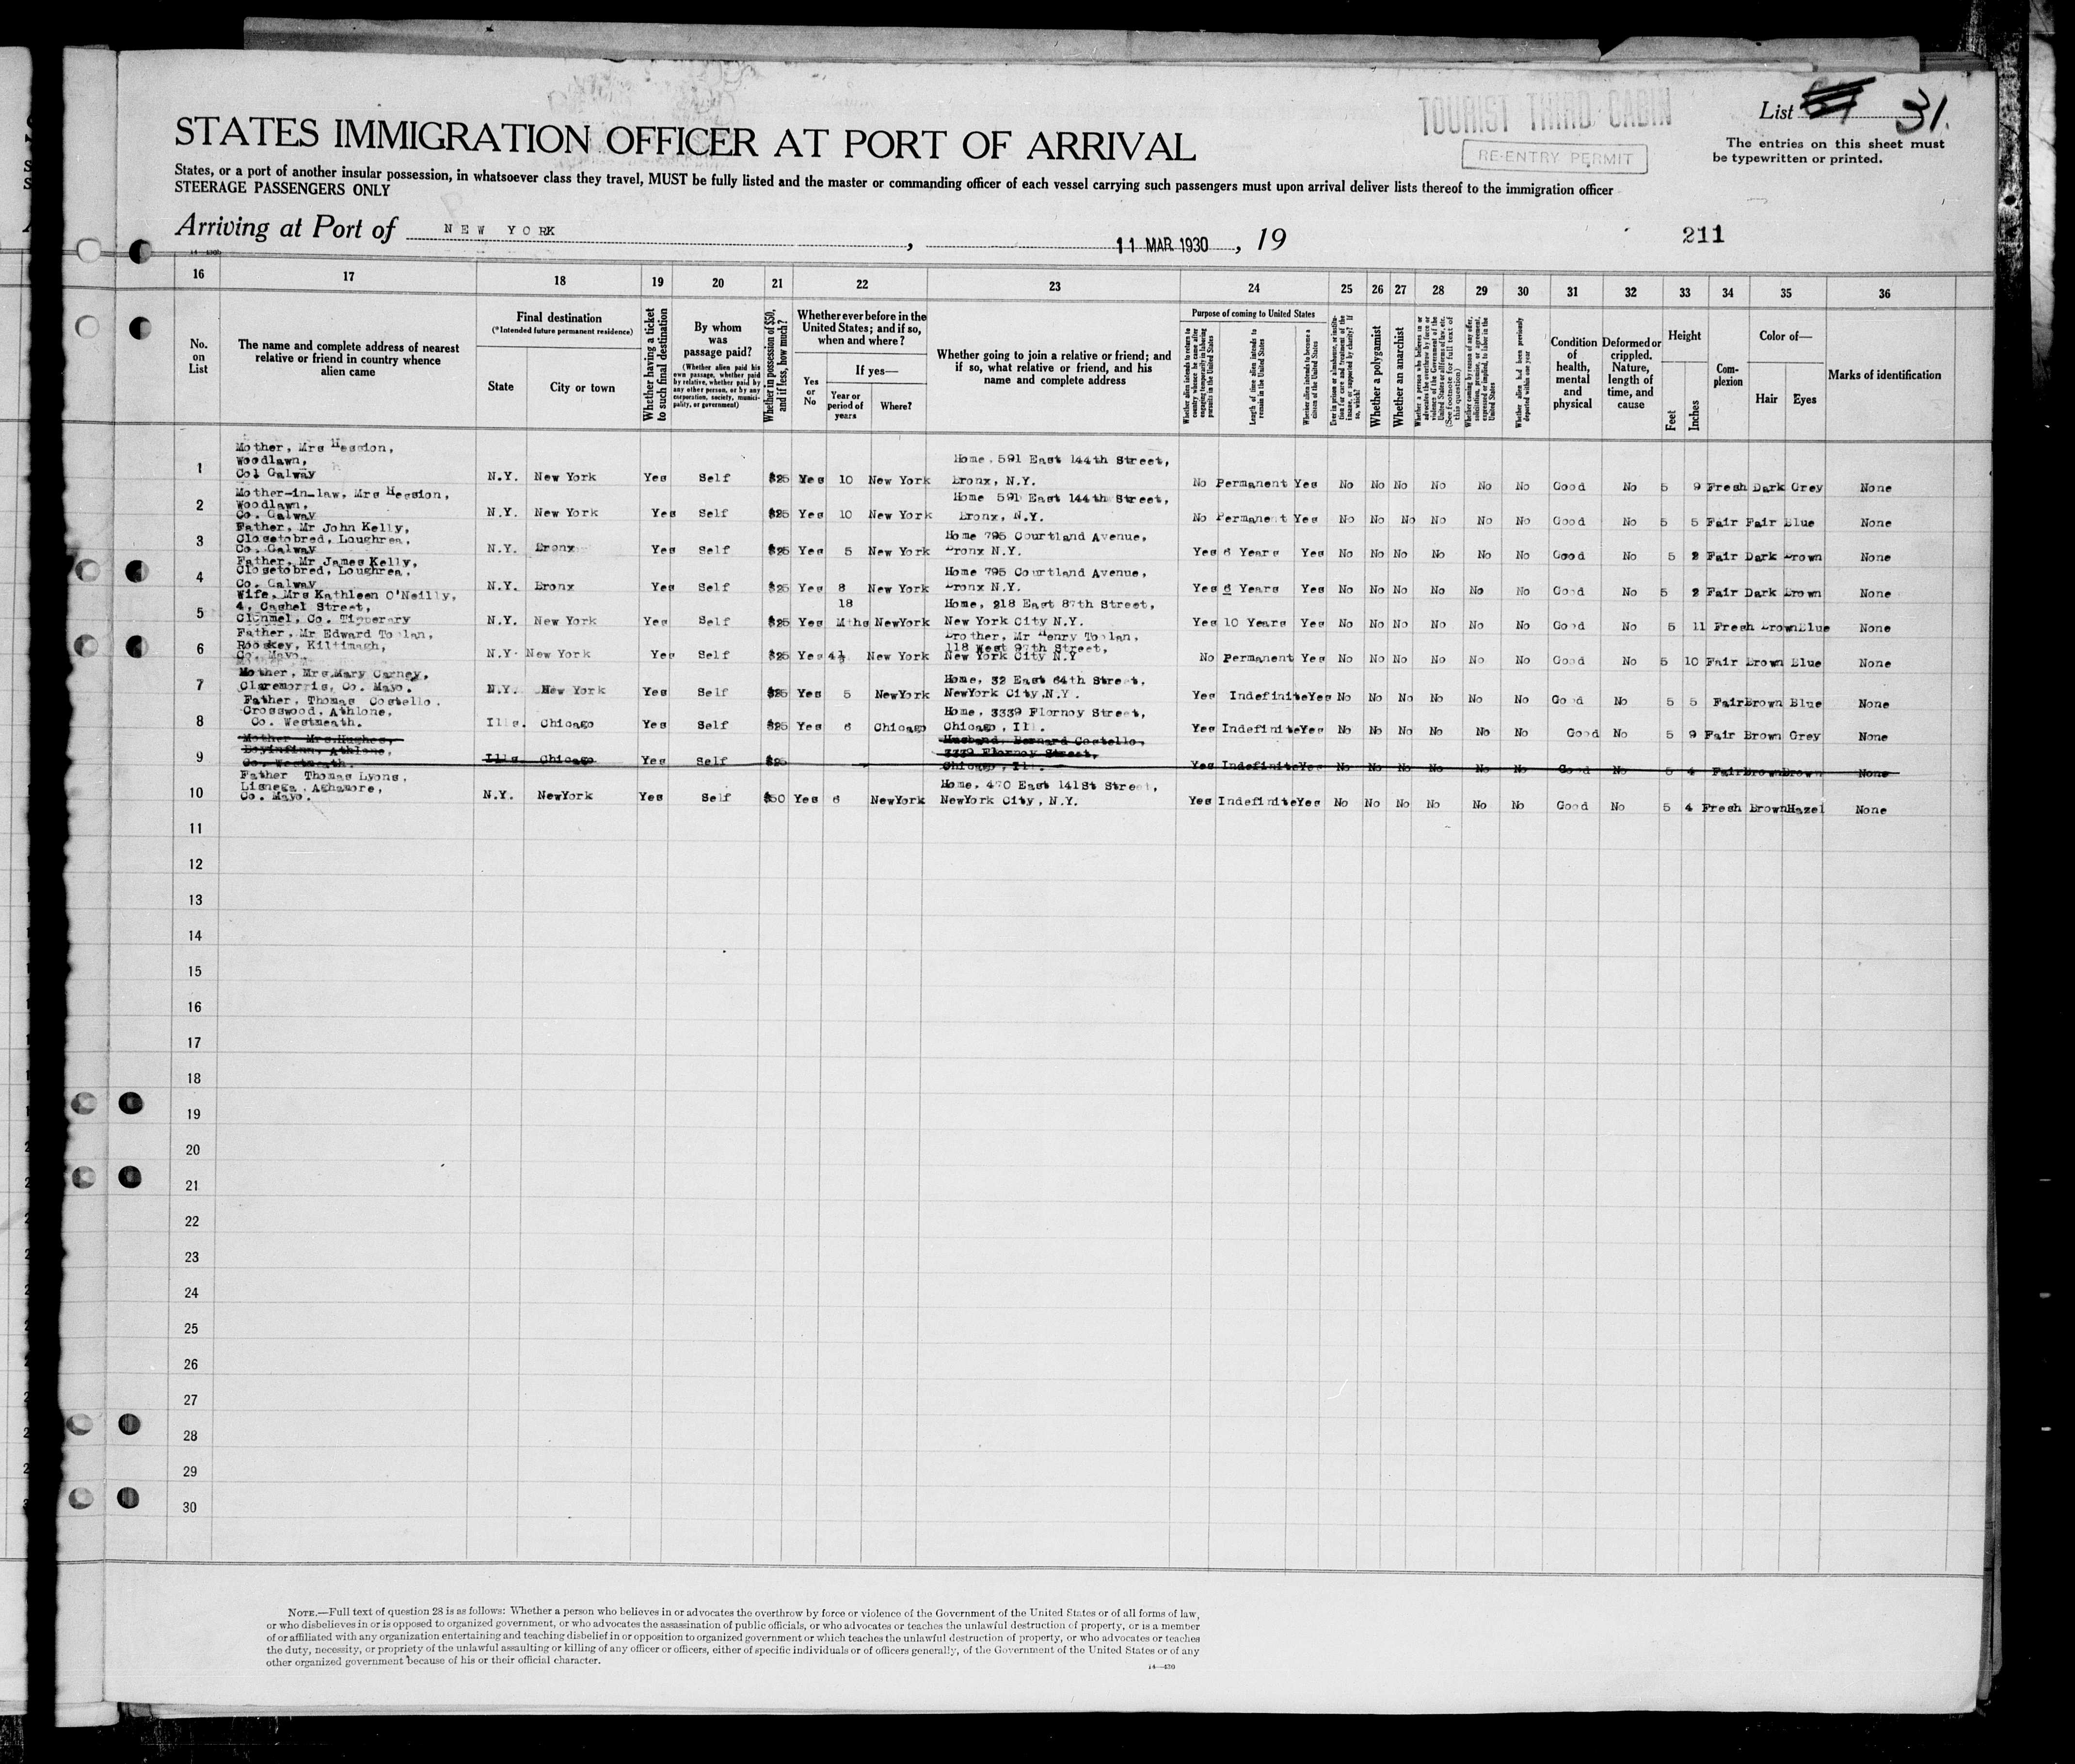 TOURIST THIRD CABIN
RE-ENTRY PERMIT
List 31.
The entries on this sheet must
be typewritten or printed.
STATES IMMIGRATION OFFICER AT PORT OF ARRIVAL
States, or a port of another insular possession, in whatsoever class they travel, MUST be fully listed and the master or commanding officer of each vessel carrying such passengers must upon arrival deliver lists thereof to the immigration officer
STEERAGE PASSENGERS ONLY
Arriving at Port of NEW YORK, 11 MAR 1930, 19
211
16 17 18 19 20 21 22 23 24 25 26 27 28 29 30 31 32 33 34 35 36
No.
on
List
The name and complete address of nearest
relative or friend in country whence
alien came
Final destination
(*Intended future permanent residence)
State
City or town
Whether having a ticket
to such final destination
By whom
was
passage paid?
(Whether alien paid his
own passage, whether paid
by relative, whether paid by
any other person, or by any
corporation, society, munici-
pality, or government)
Whether in possession of $50,
and if less, how much?
Whether ever before in the
United States; and if so,
when and where?
Yes
or
No
If yes—
Year or
period of
years
Where?
Whether going to join a relative or friend; and
if so, what relative or friend, and his
name and complete address
Purpose of coming to United States
Whether alien intends to return to
country whence he came after
engaging temporarily in laboring
pursuits in the United States
Length of time alien intends to
remain in the United States
Whether alien intends to become a
citizen of the United States
Whether a polygamist
Whether an anarchist
Whether alien had been previously
deported within one year
Condition
of
health,
mental
and
physical
Deformed or
crippled.
Nature,
length of
time, and
cause
Height
Feet
Inches
Com-
plexion
Color of—
Hair
Eyes
Marks of identification
1 Mother, Mrs Hession,
Woodlawn,
Col Galway
N.Y. New York Yes Self $25 Yes 10 New York
Home, 591 East 144th Street,
Bronx, N.Y.
No Permanent Yes No No No No No No Good No 5 9 Fresh Dark Grey None
2 Mother-in-law, Mrs Hession,
Woodlawn,
Co. Galway
N.Y. New York Yes Self $25 Yes 10 New York
Home 591 East 144th Street,
Bronx, N.Y.
No Permanent Yes No No No No No No Good No 5 5 Fair Fair Blue None
3 Father, Mr John Kelly,
Closetobred, Loughrea,
Co. Galway
N.Y. Bronx Yes Self $25 Yes 5 New York
Home 795 Courtland Avenue,
Bronx N.Y.
Yes 6 Years Yes No No No No No No Good No 5 2 Fair Dark Brown None
4 Father, Mr James Kelly,
Closetobred, Loughrea.
Co. Galway
N.Y. Bronx Yes Self $25 Yes 8 New York
Home 795 Courtland Avenue,
Bronx N.Y.
Yes 6 Years Yes No No No No No No Good No 5 2 Fair Dark Brown None
5 Wife, Mrs Kathleen O'Neilly,
4, Cashel Street,
Clonmel, Co. Tipperary
N.Y. New York Yes Self $25 Yes 18 Mths NewYork
Home, 218 East 87th Street,
New York City N.Y.
Yes 10 Years Yes No No No No No No Good No 5 11 Fresh Brown Blue None
6 Father, Mr Edward Toolan,
Rooskey, Kiltimagh,
Co. Mayo.
N.Y. New York Yes Self $25 Yes 4½ New York
Brother, Mr Henry Toolan,
118 West 97th Street,
New York City N.Y
No Permanent Yes No No No No No No Good No 5 10 Fair Brown Blue None
7 Mother, Mrs.Mary Carney,
Claremorris, Co. Mayo.
N.Y. New York Yes Self $25 Yes 5 NewYork
Home, 32 East 64th Street,
NewYork City.N.Y.
Yes Indefinite Yes No No No No No No Good No 5 5 Fair Brown Blue None
8 Father, Thomas Costello.
Crosswood, Athlone,
Co. Westmeath.
Ills. Chicago Yes Self $25 Yes 6 Chicago
Home, 3339 Flornoy Street,
Chicago, Ill.
Yes Indefinite Yes No No No No No No Good No 5 9 Fair Brown Grey None
9 Mother Mrs.Hughes,
Boyinfinn, Athlone,
Co. Westmeath.
Ills. Chicago Yes Self $25
Husband, Bernard Costello,
3339 Flornoy Street,
Chicago, Ill.
Yes Indefinite Yes No No No No No No Good No 5 4 Fair Brown Brown None
10 Father Thomas Lyons,
Lisnega, Aghamore,
Co. Mayo.
N.Y. NewYork Yes Self $50 Yes 6 NewYork
Home, 470 East 141St Street,
NewYork City, N.Y.
Yes Indefinite Yes No No No No No No Good No 5 4 Fresh Brown Hazel None
11
12
13
14
15
16
17
18
19
20
21
22
23
24
25
26
27
28
29
30
NOTE.—Full text of question 28 is as follows: Whether a person who believes in or advocates the overthrow by force or violence of the Government of the United States or of all forms of law,
or who disbelieves in or is opposed to organized government, or who advocates the assassination of public officials, or who advocates or teaches the unlawful destruction of property, or is a member
of or affiliated with any organization entertaining and teaching disbelief in or opposition to organized government or which teaches the unlawful destruction of property, or who advocates or teaches
the duty, necessity, or propriety of the unlawful assaulting or killing of any officer or officers, either of specific individuals or of officers generally, of the Government of the United States or of any
other organized government because of his or their official character.
14—430